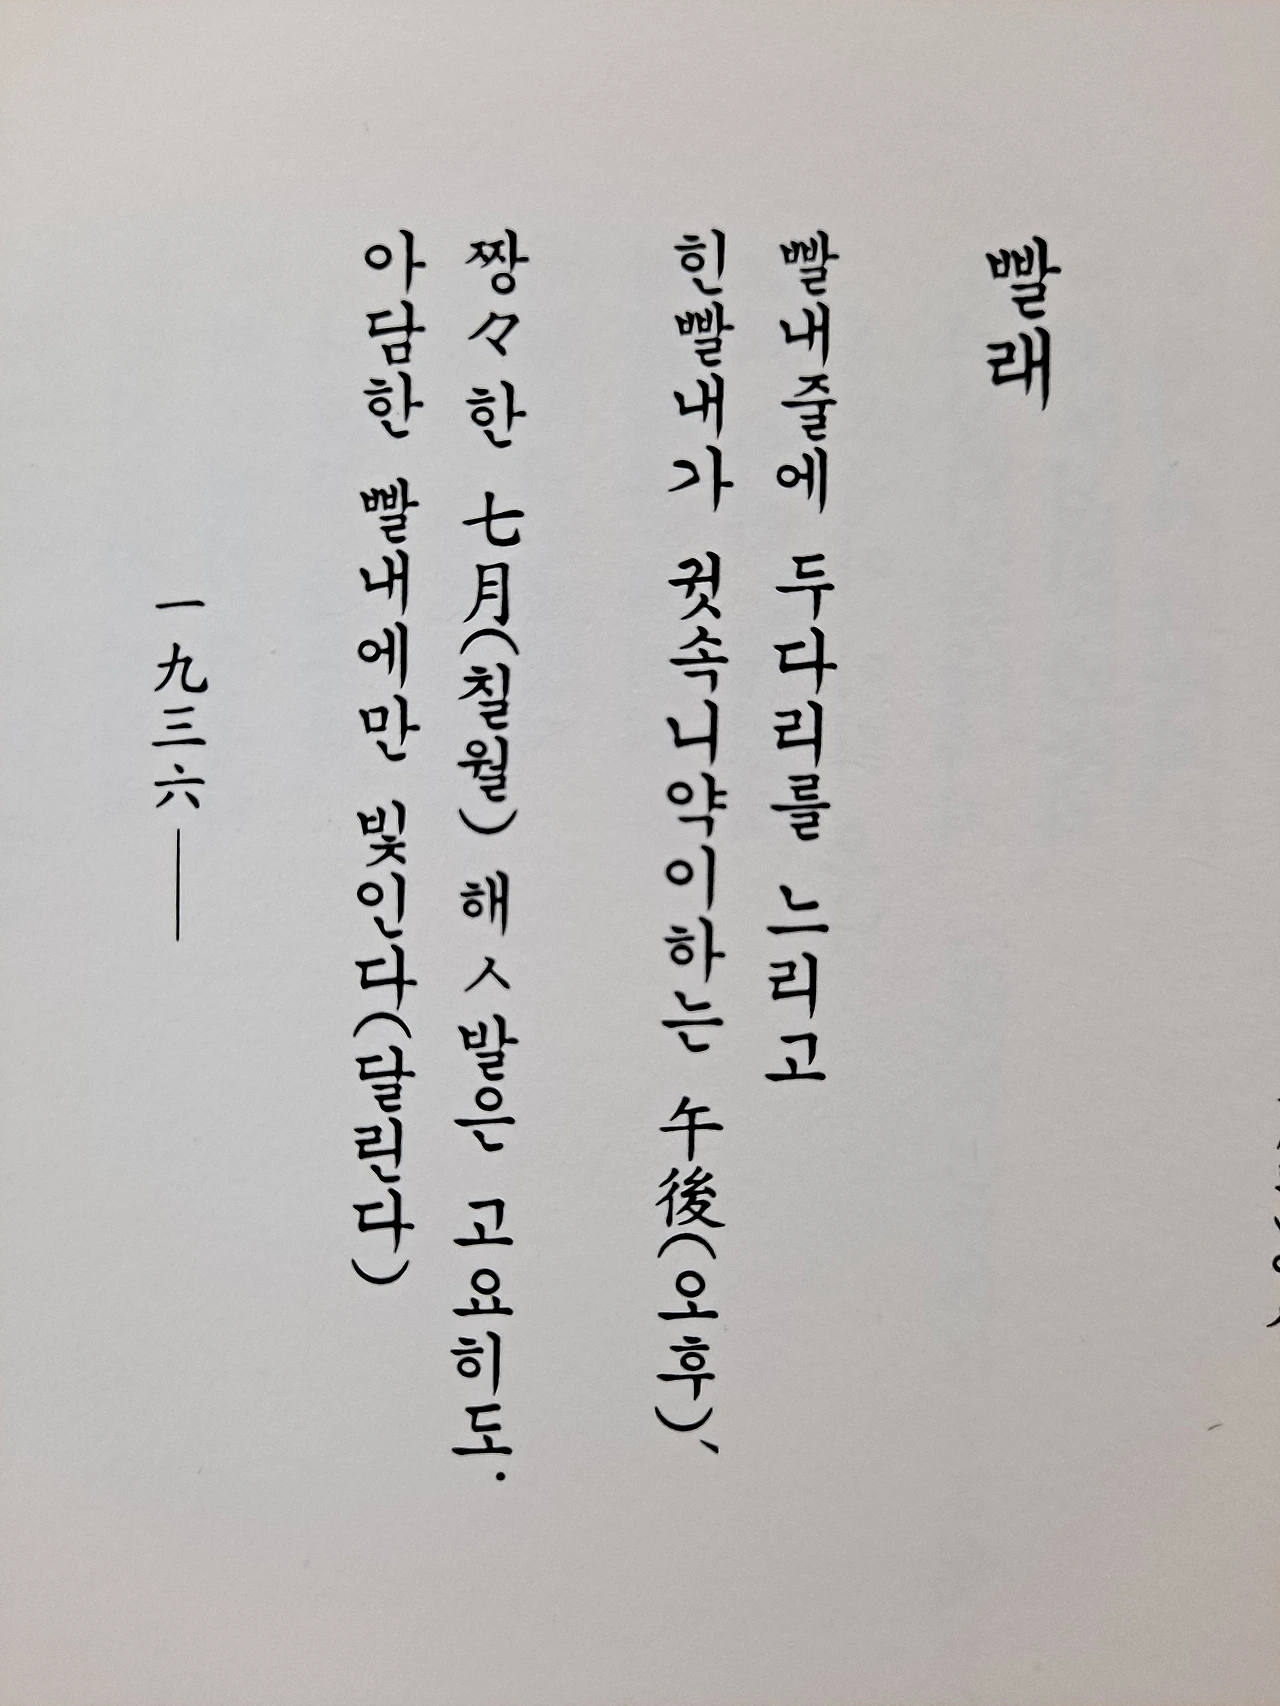 빨래
빨내줄에 두다리를 느리고
힌빨내가 귓속니약이하는 午後(오후)、
짱々한 七月(칠월) 해ㅅ발은 고요히도.
아담한 빨내에만 빛인다(달린다)
一九三六——